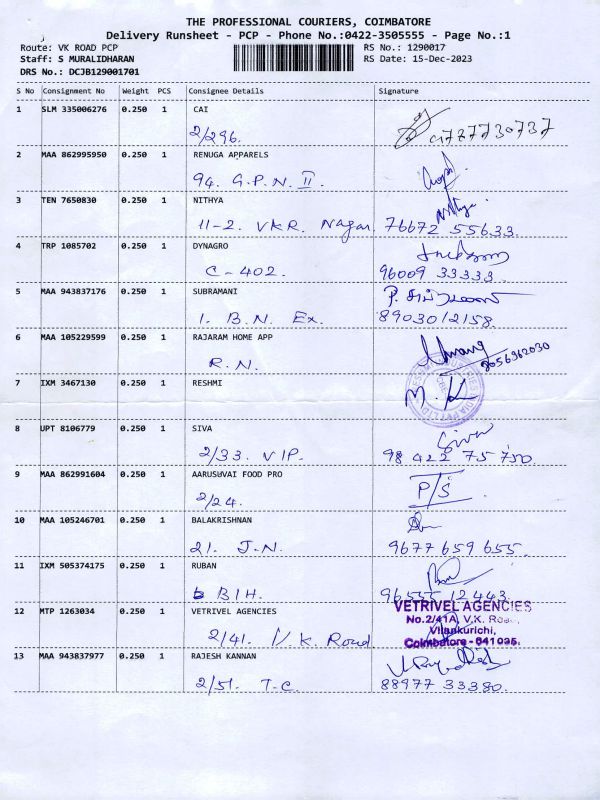 THE PROFESSIONAL COURIERS, COIMBATORE
Delivery Runsheet - PCP - Phone No.:0422-3505555 - Page No.:1
Route: VK ROAD PCP RS No.: 1290017
Staff: S MURALIDHARAN RS Date: 15-Dec-2023
DRS No.: DCJB129001701
S No Consignment No Weight PCS Consignee Details Signature
1 SLM 335006276 0.250 1 CAI
2/296.
2 MAA 862995950 0.250 1 RENUGA APPARELS
94. G.P.N. II.
3 TEN 7650830 0.250 1 NITHYA Nithya
11-2. VKR. Nagar 76672 55633.
4 TRP 1085702 0.250 1 DYNAGRO
C-402. 96009 33333.
5 MAA 943837176 0.250 1 SUBRAMANI
1. B.N. Ex. 8903012158.
6 MAA 105229599 0.250 1 RAJARAM HOME APP
R.N. 8056962030
7 IXM 3467130 0.250 1 RESHMI M. K
8 UPT 8106779 0.250 1 SIVA Siva
2/33. VIP. 98 422 75 750.
9 MAA 862991604 0.250 1 AARUSUVAI FOOD PRO P/S
2/24.
10 MAA 105246701 0.250 1 BALAKRISHNAN
21. J.N. 9677 659 655.
11 IXM 505374175 0.250 1 RUBAN
BIH. 96555 12443.
12 MTP 1263034 0.250 1 VETRIVEL AGENCIES VETRIVEL AGENCIES
2/41. V.K. Road No.2/41A, V.K. Road,
Vilankurichi,
Coimbatore - 641 035.
13 MAA 943837977 0.250 1 RAJESH KANNAN
2/51. T.C. 88977 33380.